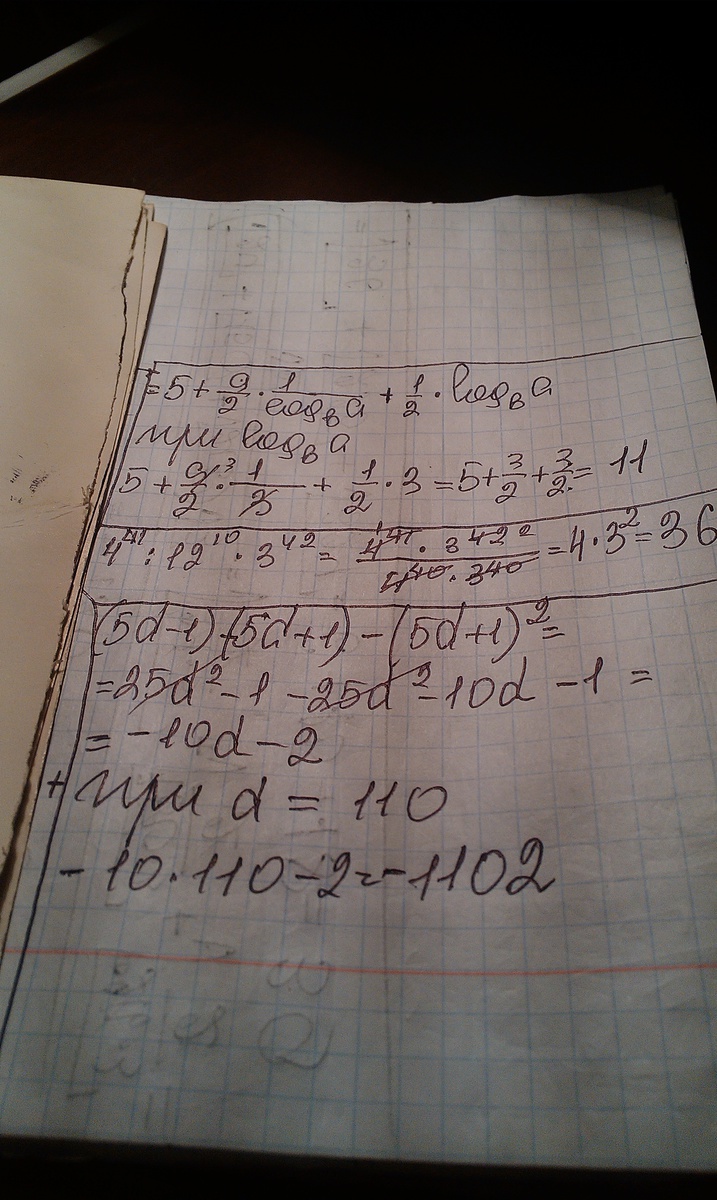 = 5 + 9/2 · 1/log_в a + 1/2 · log_в a
при log_в a
5 + 9/2 ³ · 1/3 + 1/2 · 3 = 5 + 3/2 + 3/2 = 11
4⁴¹ : 12⁴⁰ · 3⁴² = 4⁴¹ · 3⁴² ² / 4⁴⁰ · 3⁴⁰ = 4 · 3² = 36
(5d-1) (5d+1) - (5d+1)² =
= 25d² - 1 - 25d² - 10d - 1 =
= -10d - 2
+ при d = 110
- 10 · 110 - 2 = -1102